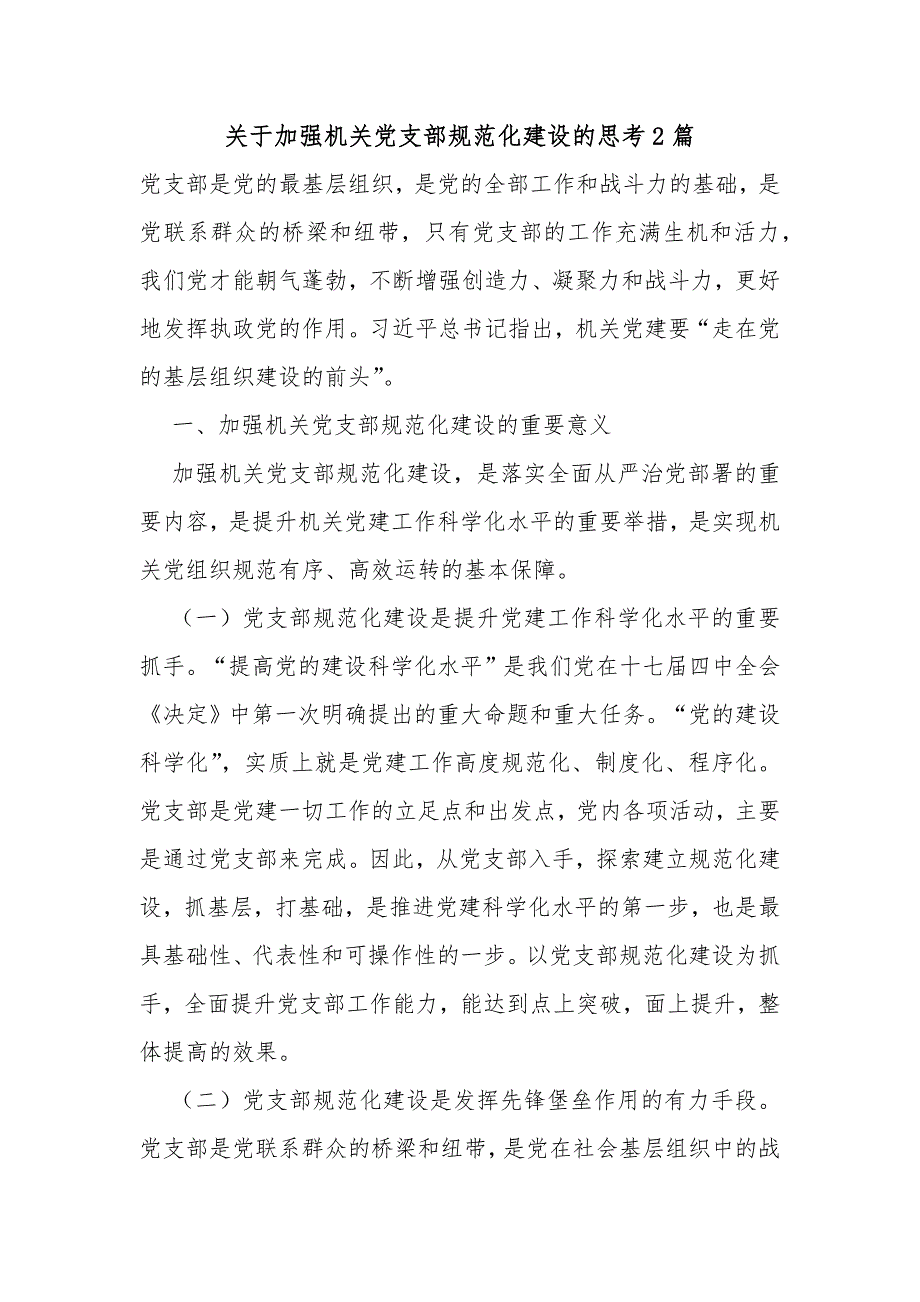 关于加强机关党支部规范化建设的思考2篇
党支部是党的最基层组织，是党的全部工作和战斗力的基础，是
党联系群众的桥梁和纽带，只有党支部的工作充满生机和活力，
我们党才能朝气蓬勃，不断增强创造力、凝聚力和战斗力，更好
地发挥执政党的作用。习近平总书记指出，机关党建要“走在党
的基层组织建设的前头”。
一、加强机关党支部规范化建设的重要意义
加强机关党支部规范化建设，是落实全面从严治党部署的重
要内容，是提升机关党建工作科学化水平的重要举措，是实现机
关党组织规范有序、高效运转的基本保障。
（一）党支部规范化建设是提升党建工作科学化水平的重要
抓手。“提高党的建设科学化水平”是我们党在十七届四中全会
《决定》中第一次明确提出的重大命题和重大任务。“党的建设
科学化”，实质上就是党建工作高度规范化、制度化、程序化。
党支部是党建一切工作的立足点和出发点，党内各项活动，主要
是通过党支部来完成。因此，从党支部入手，探索建立规范化建
设，抓基层，打基础，是推进党建科学化水平的第一步，也是最
具基础性、代表性和可操作性的一步。以党支部规范化建设为抓
手，全面提升党支部工作能力，能达到点上突破，面上提升，整
体提高的效果。
（二）党支部规范化建设是发挥先锋堡垒作用的有力手段。
党支部是党联系群众的桥梁和纽带，是党在社会基层组织中的战